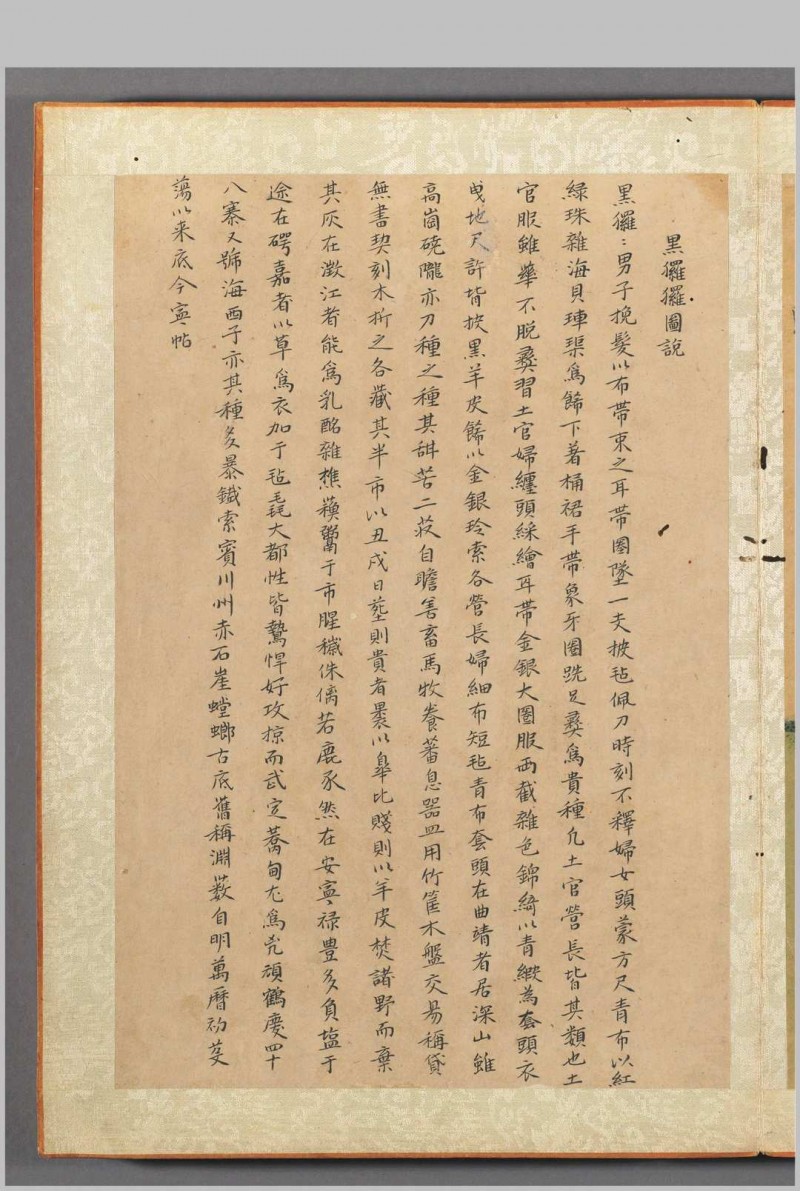 黑玀玀圖說
黑玀〻男子挽髮以布帶束之耳帶圈墜一支披毡佩刀時刻不釋婦女頭蒙方尺青布以紅
綠珠雜海貝琿璖爲飾下著桶裙手帶象牙圈跣足彞爲貴種凢土官營長皆其類也土
官服雖華不脫彞習土官婦纏頭綵繒耳帶金銀大圈服兩截雜色錦綺以青緞為套頭衣
曵地尺許皆披黑羊皮飾以金銀玲索各營長婦細布短毡青布套頭在曲靖者居深山雖
高崗磽隴亦刀種之種其甜苦二荍自贍善畜馬牧養蕃息器皿用竹筐木盤交易稱貸
無書契刻木折之各藏其半市以丑戌日葬則貴者裹以皐比賤則以羊皮焚諸野而棄
其灰在澂江者能爲乳酩雜樵蘋鬻于市腥穢侏𠌯若鹿豕然在安寧禄豊多負塩于
途在碍嘉者以草爲衣加于毡毳大都性皆驁悍好攻掠而武定蕎甸尢爲兇頑鶴慶四十
八寨又號海西子亦其種多暴鐵索賓川州赤石崖螳螂古底舊稱淵藪自明萬曆初芟
蕩以来底今寧帖